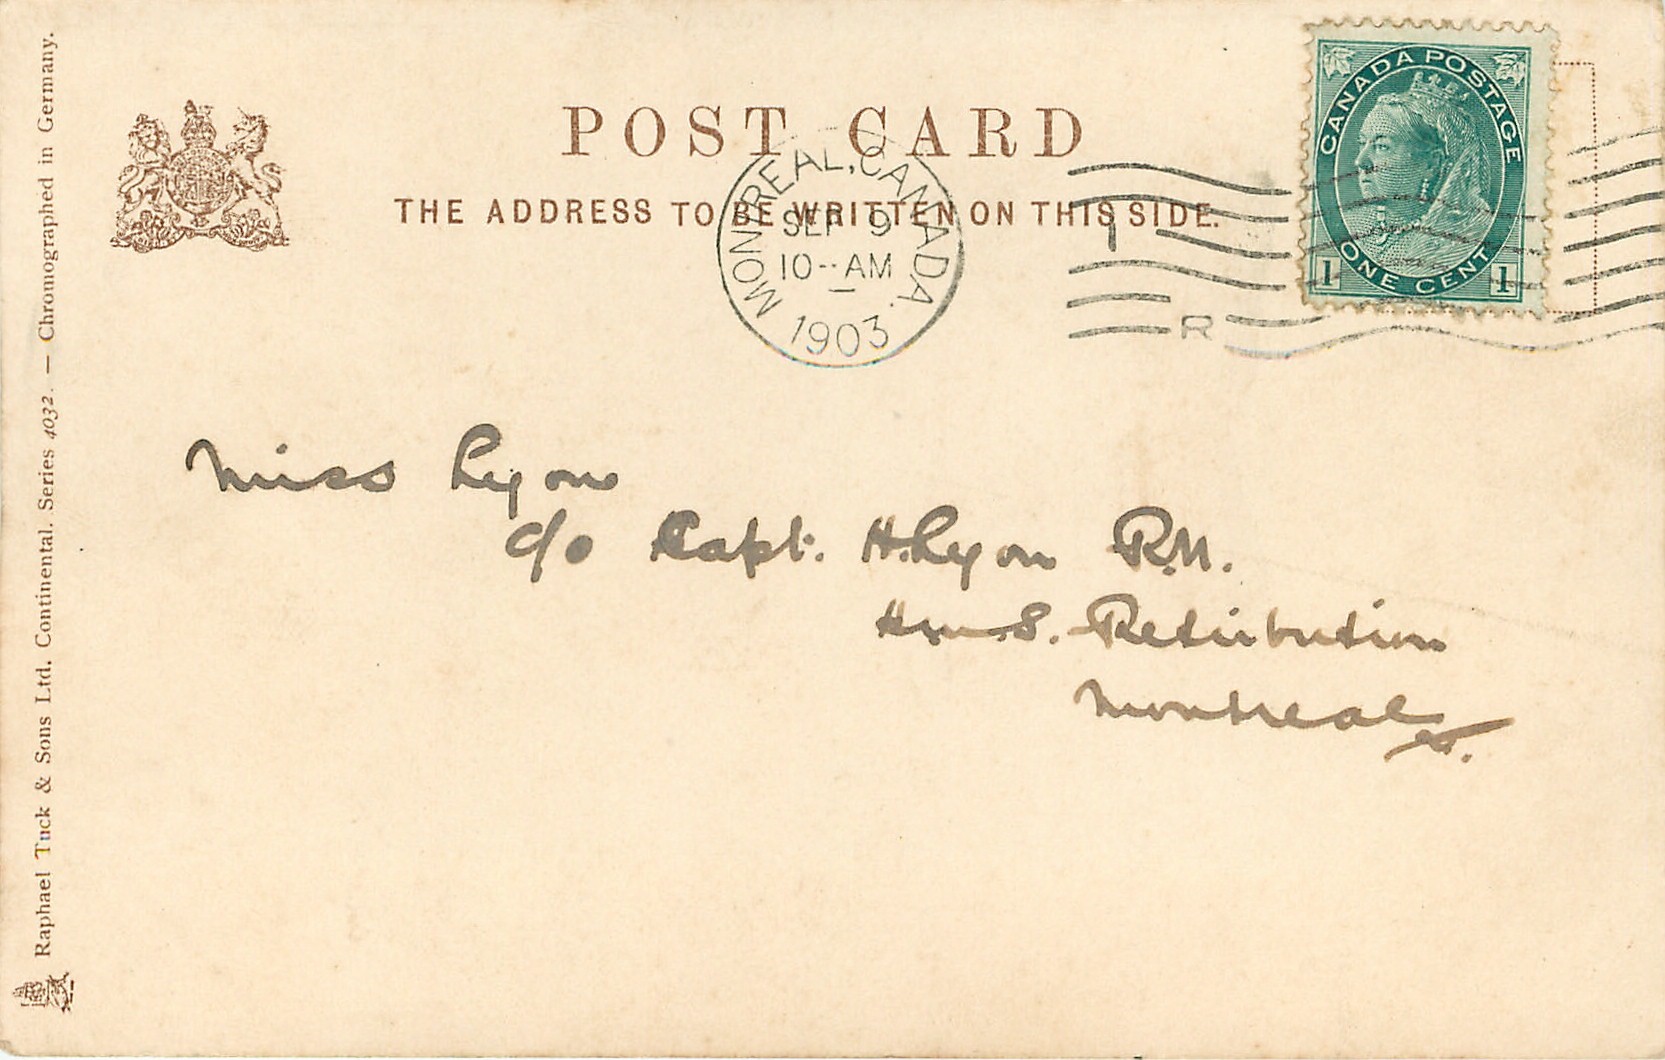 POST CARD
THE ADDRESS TO BE WRITTEN ON THIS SIDE.
MONTREAL, CANADA.
SEP 9
10--AM
1903
1
R
CANADA POSTAGE
ONE CENT
1 1
Miss Lyon
c/o Capt. H. Lyon R.N.
H.M.S. Retribution
Montreal
Raphael Tuck & Sons Ltd. Continental. Series 4032. — Chromographed in Germany.